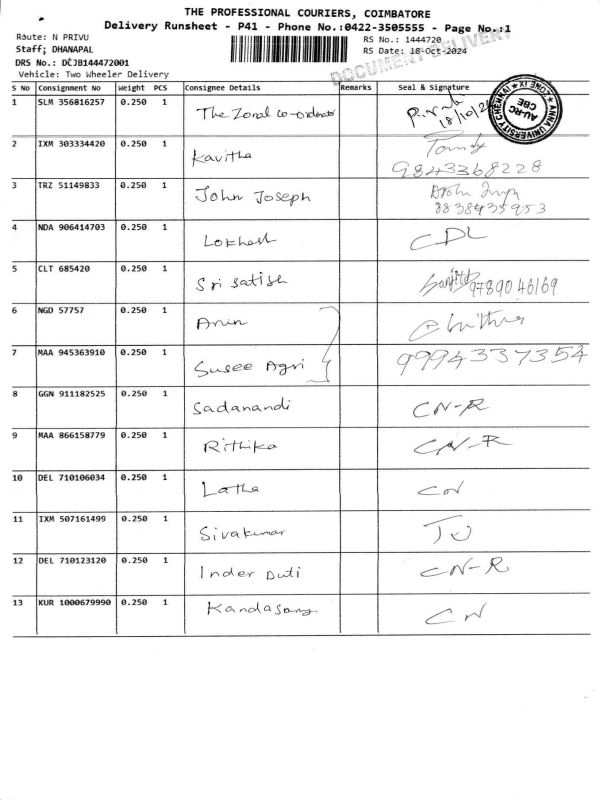 THE PROFESSIONAL COURIERS, COIMBATORE
Delivery Runsheet - P41 - Phone No.:0422-3505555 - Page No.:1
Route: N PRIVU
RS No.: 1444720
Staff: DHANAPAL
RS Date: 18-Oct-2024
DRS No.: DCJB144472001
DOCUMENT DELIVERY
Vehicle: Two Wheeler Delivery
S No Consignment No Weight PCS Consignee Details Remarks Seal & Signature
1 SLM 356816257 0.250 1 The Zonal Co-ordinator 18/10/24
ANNA UNIVERSITY CHENNAI ZONE IX AU-RC CBE
2 IXM 303334420 0.250 1 Kavitha
9843368228
3 TRZ 51149833 0.250 1 John Joseph
8838435953
4 NDA 906414703 0.250 1 Lokhesh CDL
5 CLT 685420 0.250 1 Sri Satish 9789046169
6 NGD 57757 0.250 1
7 MAA 945363910 0.250 1 Susee Agri 9994337354
8 GGN 911182525 0.250 1 Sadanandi CN-R
9 MAA 866158779 0.250 1 Rithika CN-R
10 DEL 710106034 0.250 1 Latha CN
11 IXM 507161499 0.250 1 Sivakumar
12 DEL 710123120 0.250 1 Inder Duti CN-R
13 KUR 1000679990 0.250 1 Kandasamy CN